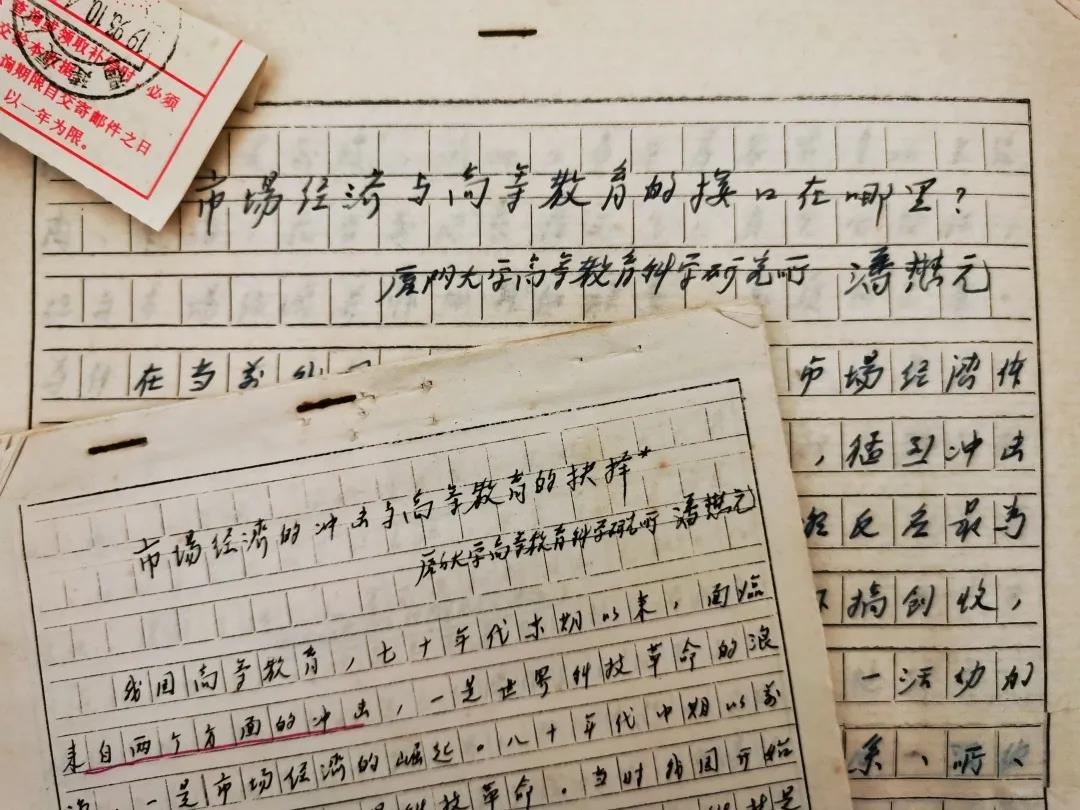 查询或领取补偿时，必须
交验本收据。
询期限自交寄邮件之日
以一年为限。
市场经济与高等教育的接口在哪里？
厦门大学高等教育科学研究所 潘懋元
在当前
市场经济体
，猛烈冲击
反应最为
搞创收，
一活动的
系、所、
市场经济的冲击与高等教育的抉择*
厦门大学高等教育科学研究所 潘懋元
我国高等教育，七十年代末期以来，面临
来自两个方面的冲击，一是世界科技革命的浪
一是市场经济的崛起。八十年代中期以前
科技革命。当时我国开始